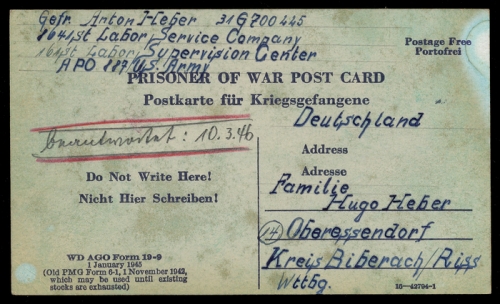 Gefr. Anton Heber 31G700445
1641st Labor Service Company
161st Labor Supervision Center
APO 887 U.S. Army
Postage Free
Portofrei
PRISONER OF WAR POST CARD
Postkarte für Kriegsgefangene
Deutschland
beantwortet: 10.3.46
Address
Do Not Write Here!
Adresse
Familie
Nicht Hier Schreiben!
Hugo Heber
(14) Oberessendorf
WD AGO Form 19-9
1 January 1945
(Old PMG Form 6-1, 1 November 1942,
which may be used until existing
stocks are exhausted)
Kreis Biberach/Riss
Wttbg.
16—42794-1